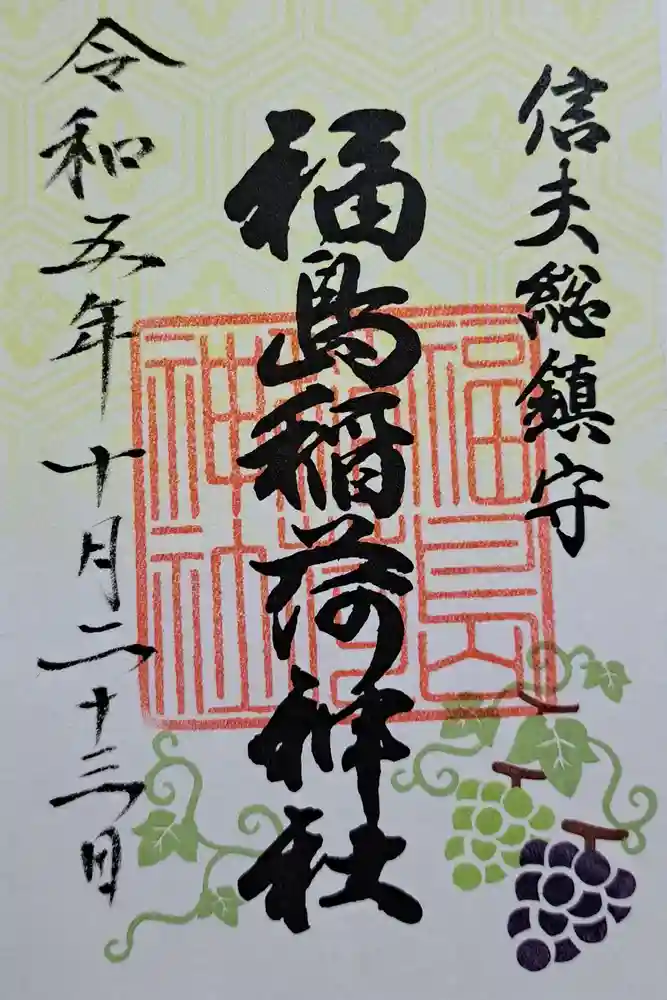 信夫総鎮守
福島稲荷神社
福島稲荷神社
令和五年十月二十三日